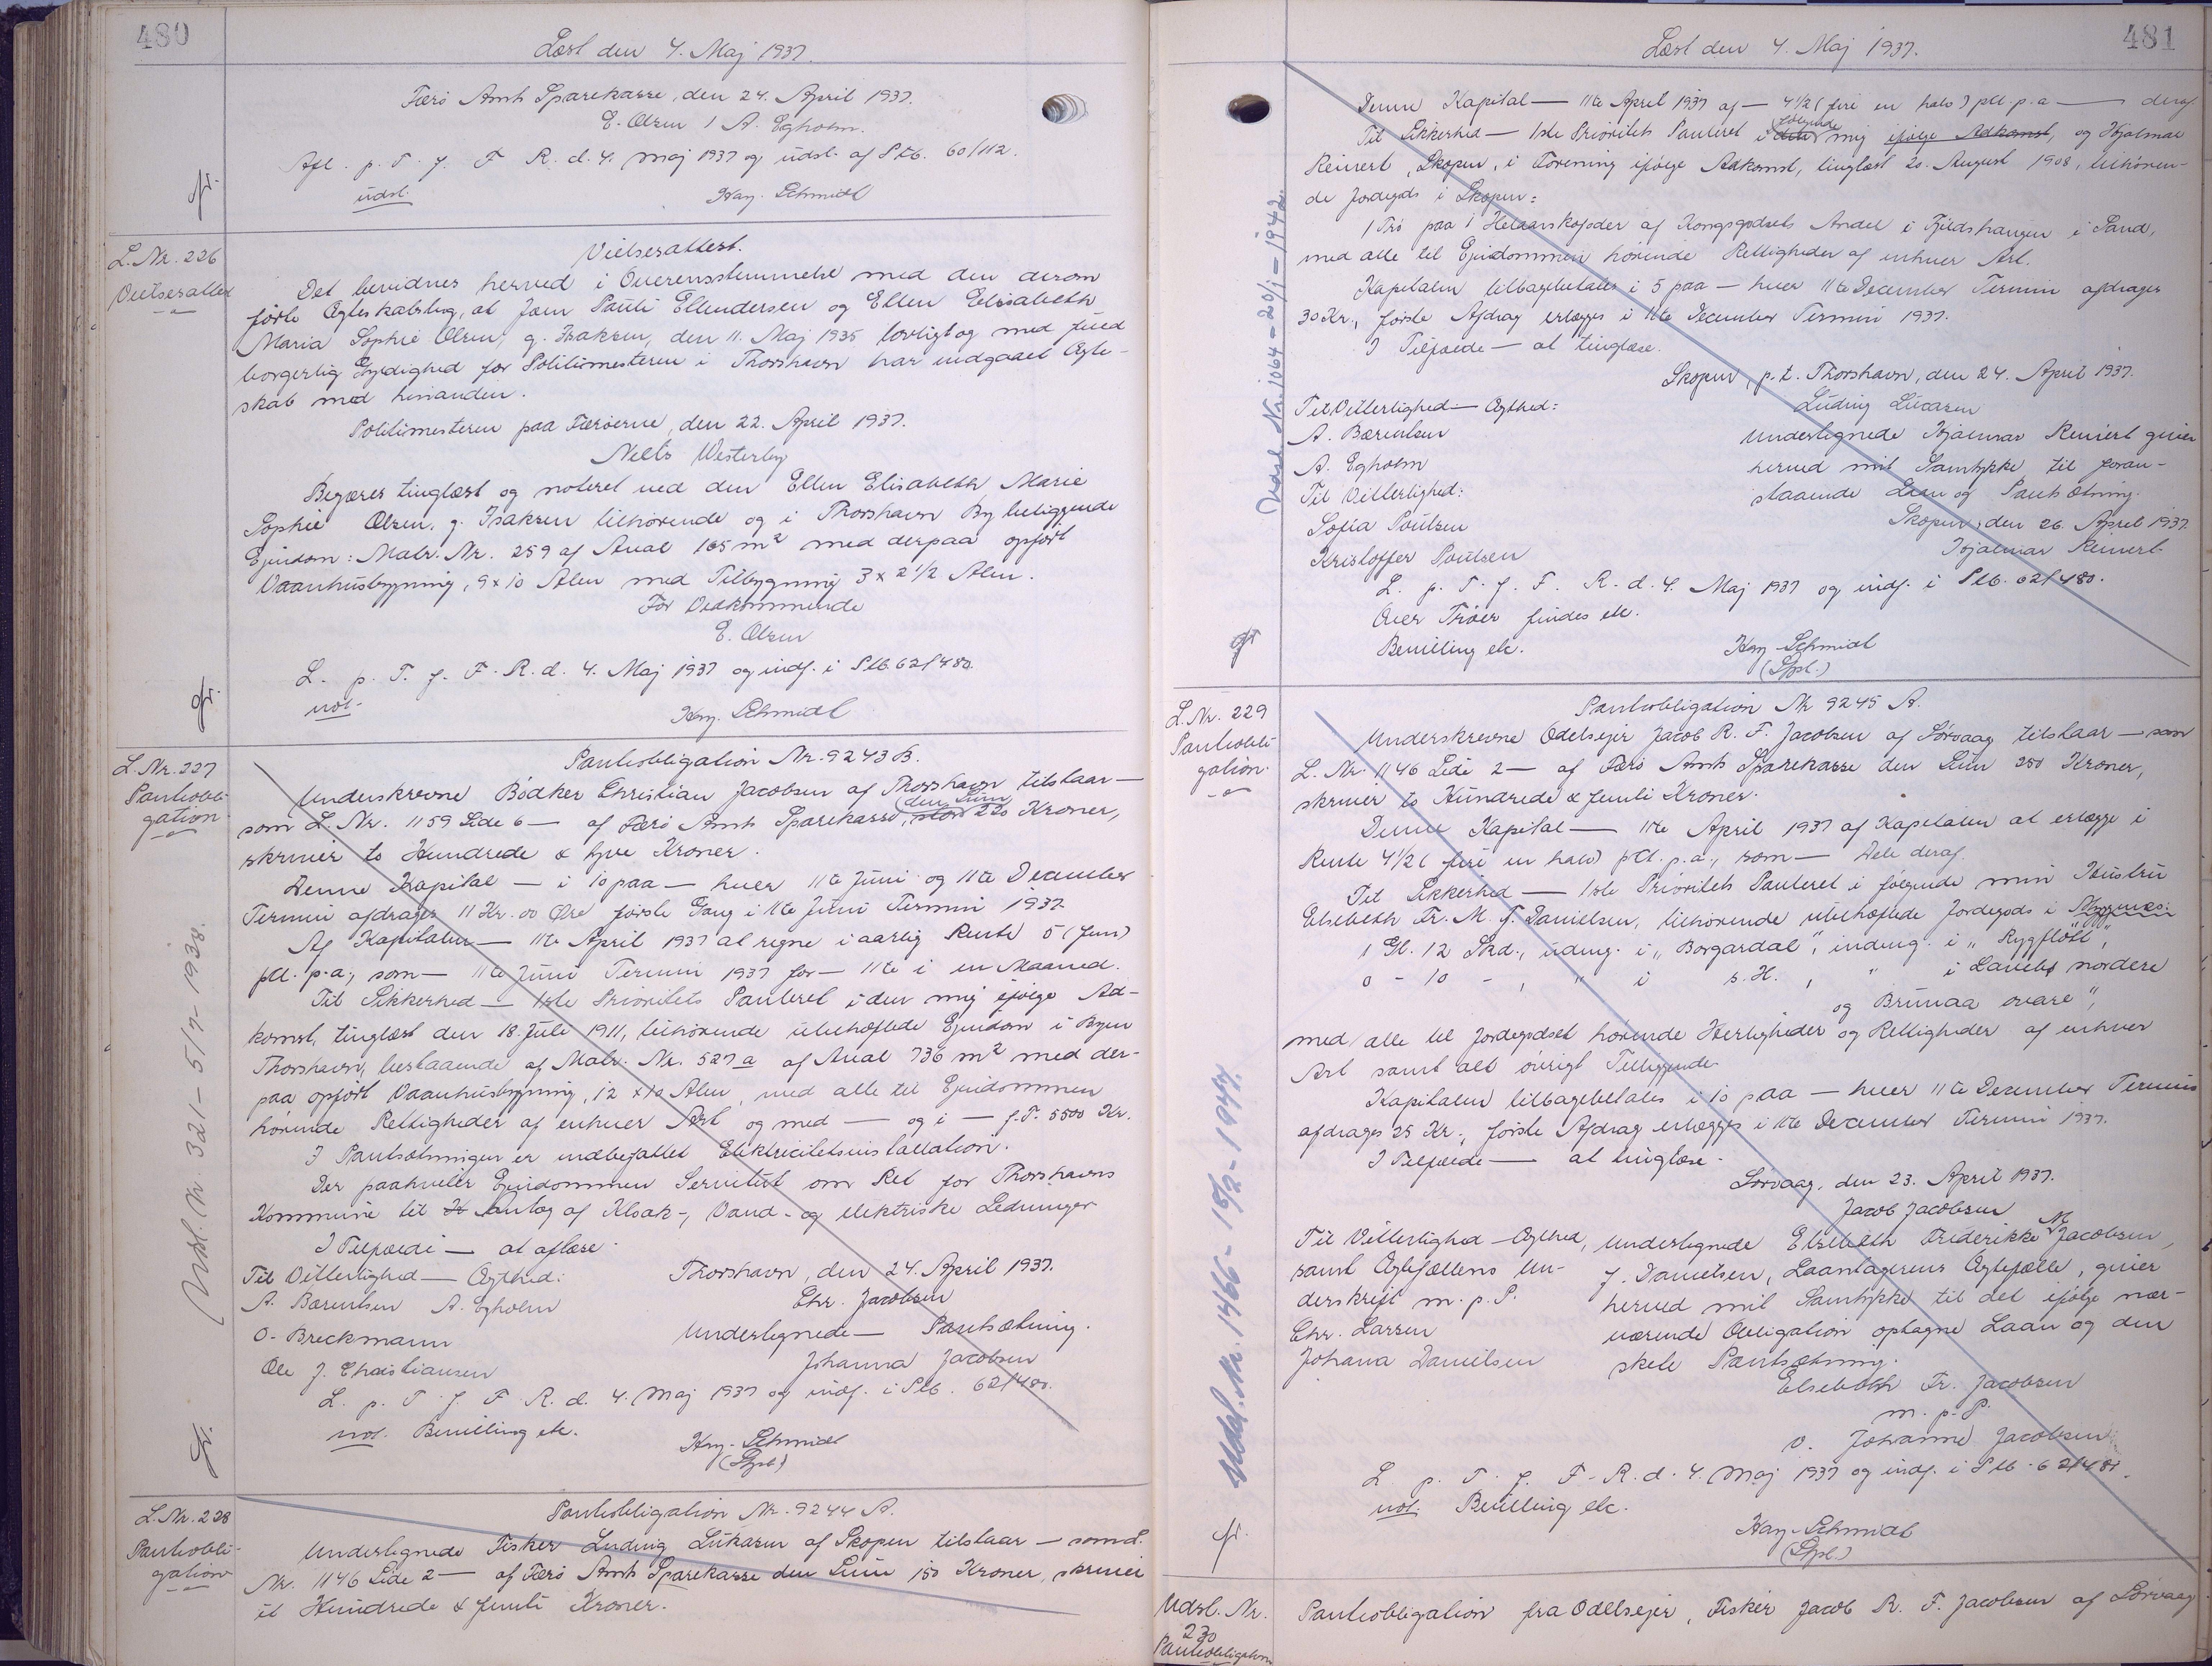 480
Læst den 4. Maj 1937.
Færø Amts Sparekasse, den 24. April 1937.
E. Olsen / A. Egholm.
Afl. p. T. f. F. R. d. 4. Maj 1937 og udsl. af Ptb. 60/112.
udsl.
Kay. Schmidt
L. Nr. 226
Vielsesattest
Vielsesattest.
Det bevidnes herved i Overensstemmelse med den derom
førte Ægteskabsbog, at Jørn Pauli Ellendersen og Ellen Elisabeth
Maria Sophie Olsen, g. Isaksen, den 11. Maj 1935 lovligt og med fuld
borgerlig Gyldighed for Politimesteren i Thorshavn har indgaaet Ægte-
skab med hinanden.
Politimesteren paa Færøerne, den 22. April 1937.
Niels Westerby
Begæres tinglæst og noteret ved den Ellen Elisabeth Marie
Sophie Olsen, g. Isaksen tilhørende og i Thorshavn By beliggende
Ejendom: Matr. Nr. 259 af Areal 165 m² med derpaa opført
Vaaanhusbygning, 9 x 10 Alen med Tilbygning 3 x 2 1/2 Alen.
For Vedkommende
E. Olsen
L. p. T. f. F. R. d. 4. Maj 1937 og indf. i Ptb. 62/480.
not.
Kay. Schmidt
L. Nr. 227
Pantobli-
gation
Udsl. Nr. 321 - 5/7 - 1938.
Pantobligation Nr. 9243 B.
Underskrevne Bødker Christian Jacobsen af Thorshavn tilstaar —
(den Sum
som L. Nr. 1159 Side 6 — af Færø Amts Sparekasse, stor 220 Kroner,
skriver to Hundrede & tyve Kroner.
Denne Kapital — i 10 paa — hver 11te Juni og 11te December
Termin afdrages 11 Kr. 00 Øre første Gang i 11te Juni Termin 1937.
Af Kapitalen — 11te April 1937 at regne i aarlig Rente 5 (fem)
pCt. p.a., som — 11te Juni Termin 1937 for — 11te i en Maaned.
Til Sikkerhed — 1ste Prioritets Panteret i den mig ifølge Ad-
komst, tinglæst den 18. Juli 1911, tilhørende ubehæftede Ejendom i Byen
Thorshavn, bestaaende af Matr. Nr. 527 a af Areal 736 m² med der-
paa opført Vaaanhusbygning, 12 x 10 Alen, med alle til Ejendommen
hørende Rettigheder af enhver Art og med — og i — f.T. 5500 Kr.
I Pantsætningen er indbefattet Elektricitetsinstallation.
Der paahviler Ejendommen Servitut om Ret for Thorshavns
Kommune til K Anlæg af Kloak-, Vand- og elektriske Ledninger
I Tilfælde — at aflæse.
Til Vitterlighed — Ægthed:
Thorshavn, den 24. April 1937.
A. Bærentsen A. Egholm
Chr. Jacobsen
O. Breckmann
Underlegnede — Pantsætning.
Ole J. Christiansen
Johanna Jacobsen
L. p. T. f. F. R. d. 4. Maj 1937 og indf. i Ptb. 62/480.
not. Bevilling etc.
Kay. Schmidt
(Spl.)
L. Nr. 228
Pantobli-
gation
Pantobligation Nr. 9244 A.
Underlegnede Fisker Ludvig Lukasen af Skopen tilstaar — som L.
Nr. 1146 Side 2 — af Færø Amts Sparekasse den Sum 150 Kroner, skriver
et Hundrede & femti Kroner.
481
Læst den 4. Maj 1937.
Udsl. Nr. 1064 - 20/1 - 1942.
Denne Kapital — 11te April 1937 af — 4 1/2 (fire en halv) pCt. p.a — deraf.
følgende
Til Sikkerhed — 1ste Prioritets Panteret i det mig ifølge Adkomst, og Hjalmar
Reinert, Skopen, i Forening ifølge Adkomst, tinglæst 20. August 1908, tilhøren-
de Jordegods i Skopen:
1 Trø paa 1 Helaarskofoder af Kongsgodsets Andel i Fjeldshaugen i Sand,
med alle til Ejendommen hørende Rettigheder af enhver Art.
Kapitalen tilbagebetales i 5 paa — hver 11te December Termin afdrages
30 Kr., første Afdrag erlægges i 11te December Termin 1937.
I Tilfælde — at tinglæse.
Skopen, p.t. Thorshavn, den 24. April 1937.
Til Vitterlighed — Ægthed:
Ludvig Lucasen
A. Bærentsen
Underlegnede Hjalmar Reinert giver
A. Egholm
herved mit Samtykke til foran-
Til Vitterlighed:
staaende Laan og Pantsætning.
Sofia Poulsen
Skopen, den 26. April 1937.
Kristoffer Poulsen
Hjalmar Reinert.
L. p. T. f. F. R. d. 4. Maj 1937 og indf. i Ptb. 62/480.
Over Trøer findes etc.
Bevilling etc.
Kay Schmidt
(Spl.)
L. Nr. 229
Pantobli-
gation.
Udsl. Nr. 1466 - 15/2 - 1944.
Pantobligation Nr 9245 A.
Underskrevne Odelsejer Jacob R. F. Jacobsen af Sørvaag tilstaar — som
L. Nr. 1146 Side 2 — af Færø Amts Sparekasse den Sum 250 Kroner,
skriver to Hundrede & femti Kroner.
Denne Kapital — 11te April 1937 af Kapitalen at erlægge i
Rente 4 1/2 (fire en halv) pCt. p.a., som — Dele deraf.
Til Sikkerhed — 1ste Prioritets Panteret i følgende min Hustru
Elsebeth Fr. M. f. Danielsen, tilhørende ubehæftede Jordegods i Mygenæs:
1 Gl. 12 Skd., udmg. i „Borgardal", indmg. i „Rygfløtt",
0 - 10 - , " i s. H. , " i Lauchs nordere
og Brunaa ovare",
med alle til Jordegodset hørende Herligheder og Rettigheder af enhver
Art samt alt øvrigt Tilliggende.
Kapitalen tilbagebetales i 10 paa — hver 11te December Termin
afdrages 25 Kr., første Afdrag erlægges i 11te December Termin 1937.
I Tilfælde — at tinglæse.
Sørvaag, den 23. April 1937.
Jacob Jacobsen
Til Vitterlighed — Ægthed,
samt Ægtefællens Un-
derskrift m. p. P.
Chr. Larsen
Johana Danielsen
M.
Underlegnede Elsebeth Frederikke Jacobsen,
f. Danielsen, Laantagerens Ægtefælle, giver
herved mit Samtykke til det ifølge nær-
værende Obligation optagne Laan og den
skete Pantsætning.
Elsebeth Fr. Jacobsen
m. p. P.
v. Johanne Jacobsen
L. p. T. f. F. R. d. 4. Maj 1937 og indf. i Ptb. 62/481.
not. Bevilling etc.
Kay. Schmidt
(Spl.)
Udsl. Nr.
230
Pantobligation
Pantobligation fra Odelsejer, Fisker Jacob R. F. Jacobsen af Sørvaag